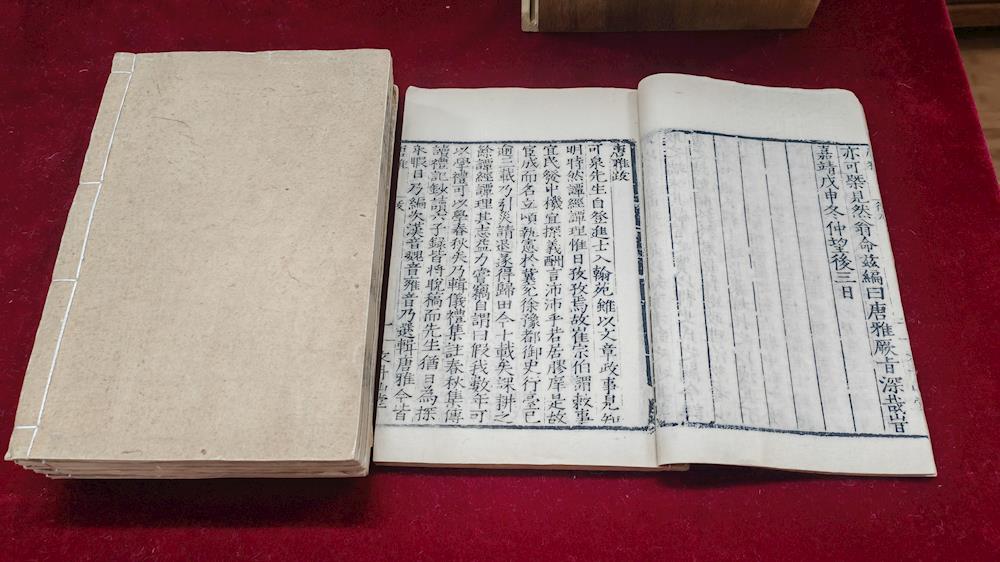 亦可槩見然翁命茲編曰唐雅厥旨深哉旹
嘉靖戊申冬仲望後三日
唐雅跋
可泉先生自登進士入翰苑雖以文章政事見知
明時然譚經譚理惟日孜孜焉故崔宗伯謂敷事
宜民發中機宜探義酬言沛沛乎若居膠庠是故
官成而名立頃執憲於冀兗徐豫都御史行臺已
逾三載乃引災請退遂得歸田今十載矣課耕之
餘譚經譚理其志益力嘗竊自謂曰假我數年可
以學禮可以學春秋矣乃輯儀禮集註春秋集傳
讀禮記鈔六子錄皆將脫稿而先生猶日為探
來暇日乃編次漢音魏音雅音乃選輯唐雅今皆